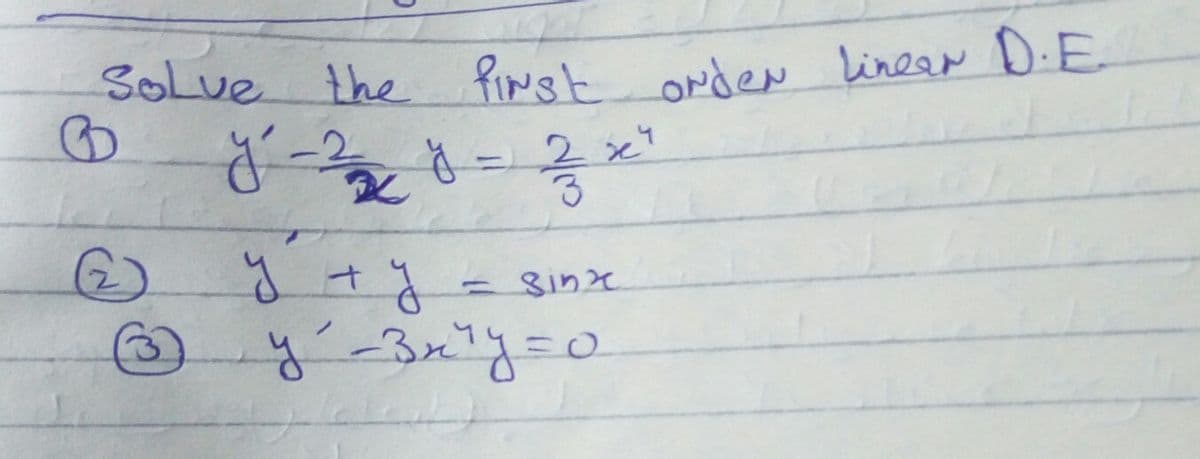 Solve the first order linear D.E.
① y' - 2/x y = 2/3 x⁴
② y' + y = sinx
③ y' - 3x⁴y = 0